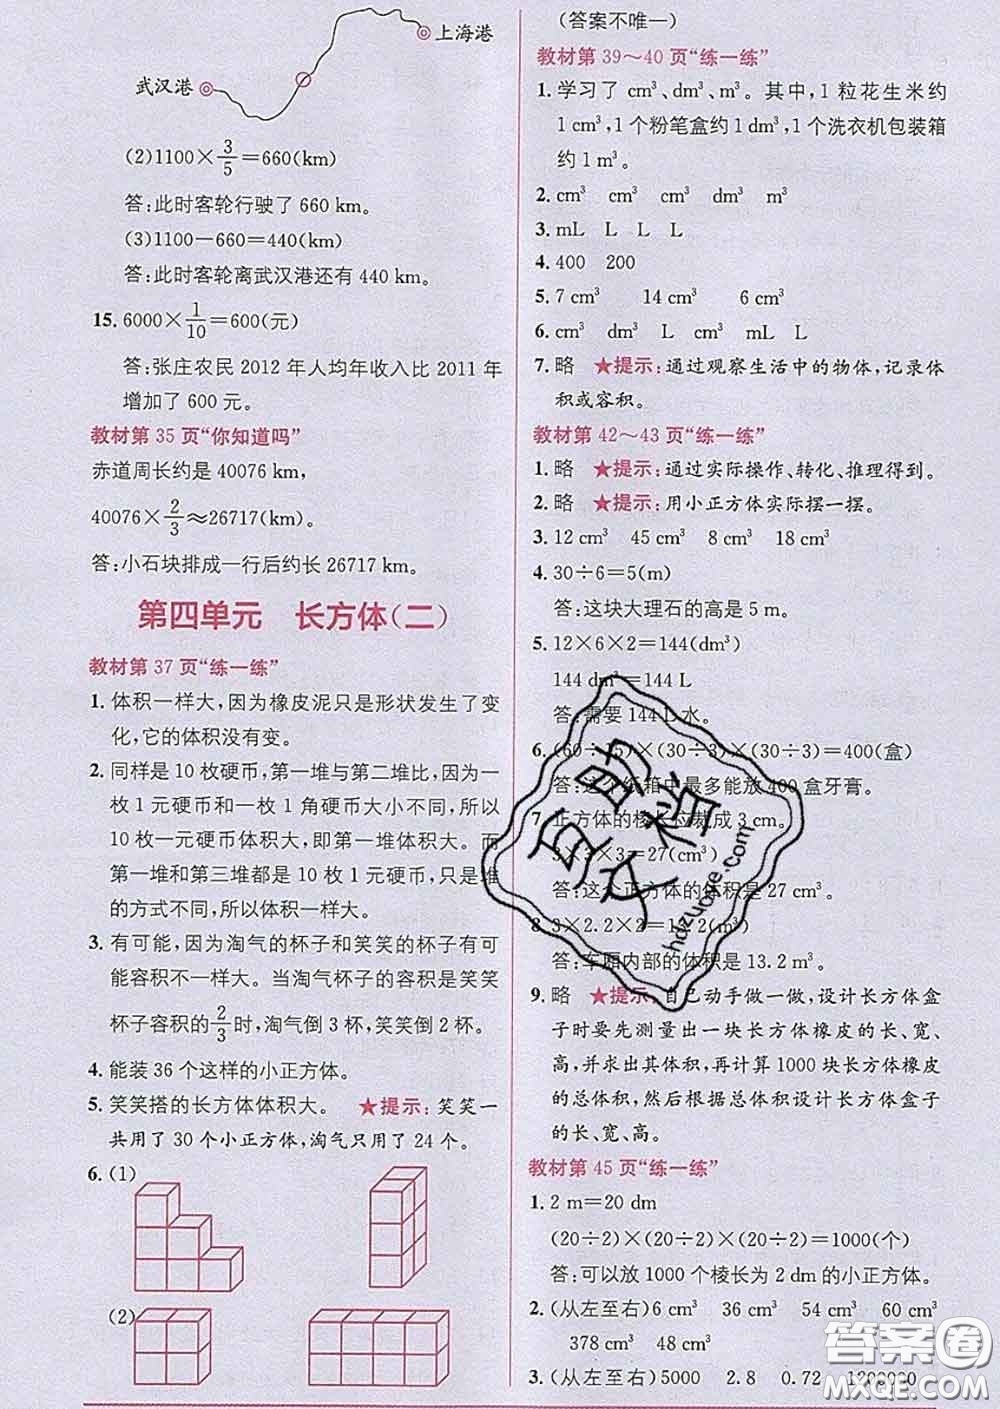 上海港
武汉港
(2)1100×3/5=660(km)
答:此时客轮行驶了 660 km。
(3)1100-660=440(km)
答:此时客轮离武汉港还有 440 km。
15. 6000×1/10=600(元)
答:张庄农民 2012 年人均年收入比 2011 年
增加了 600 元。
教材第 35 页“你知道吗”
赤道周长约是 40076 km,
40076×2/3≈26717(km)。
答:小石块排成一行后约长 26717 km。
第四单元 长方体(二)
教材第 37 页“练一练”
1. 体积一样大,因为橡皮泥只是形状发生了变
化,它的体积没有变。
2. 同样是 10 枚硬币,第一堆与第二堆比,因为一
枚 1 元硬币和一枚 1 角硬币大小不同,所以
10 枚一元硬币体积大,即第一堆体积大。而
第一堆和第三堆都是 10 枚 1 元硬币,只是堆
的方式不同,所以体积一样大。
3. 有可能,因为淘气的杯子和笑笑的杯子有可
能容积不一样大。当淘气杯子的容积是笑笑
杯子容积的2/3时,淘气倒 3 杯,笑笑倒 2 杯。
4. 能装 36 个这样的小正方体。
5. 笑笑搭的长方体体积大。 ★提示:笑笑一
共用了 30 个小正方体,淘气只用了 24 个。
6. (1)
(2)
(答案不唯一)
教材第 39～40 页“练一练”
1. 学习了 cm³、dm³、m³。其中,1 粒花生米约
1 cm³,1 个粉笔盒约 1 dm³,1 个洗衣机包装箱
约 1 m³。
2. cm³ cm³ dm³ m³
3. mL L L L
4. 400 200
5. 7 cm³ 14 cm³ 6 cm³
6. cm³ dm³ L cm³ mL L
7. 略 ★提示:通过观察生活中的物体,记录体
积或容积。
教材第 42～43 页“练一练”
1. 略 ★提示:通过实际操作、转化、推理得到。
2. 略 ★提示:用小正方体实际摆一摆。
3. 12 cm³ 45 cm³ 8 cm³ 18 cm³
4. 30÷6=5(m)
答:这块大理石的高是 5 m。
5. 12×6×2=144(dm³)
144 dm³=144 L
答:需要 144 L 水。
6. (60÷15)×(30÷3)×(30÷3)=400(盒)
答:这个纸箱中最多能放 400 盒牙膏。
7. 正方体的棱长应裁成 3 cm。
3×3×3=27(cm³)
答:这个正方体的体积是 27 cm³。
8. 3×2.2×2=13.2(m³)
答:车厢内部的体积是 13.2 m³。
9. 略 ★提示:自己动手做一做,设计长方体盒
子时要先测量出一块长方体橡皮的长、宽、
高,并求出其体积,再计算 1000 块长方体橡皮
的总体积,然后根据总体积设计长方体盒子
的长、宽、高。
教材第 45 页“练一练”
1. 2 m=20 dm
(20÷2)×(20÷2)×(20÷2)=1000(个)
答:可以放 1000 个棱长为 2 dm 的小正方体。
2. (从左至右)6 cm³ 36 cm³ 54 cm³ 60 cm³
378 cm³ 48 cm³
3. (从左至右)5000 2.8 0.72 1200000
hdzuoye.com
答案圈
MXQE.COM